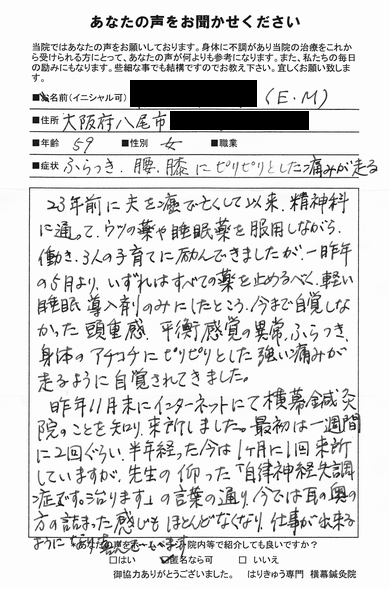 あなたの声をお聞かせください
当院ではあなたの声をお願いしております。身体に不調があり当院の治療をこれか
ら受けられる方にとって、あなたの声が何よりも参考になります。また、私たちの毎日
の励みにもなります。些細な事でも結構ですのでお教え下さい。宜しくお願い致しま
す。
■お名前(イニシャル可) (E.M)
■住所 大阪府八尾市
■年齢 59 ■性別 女 ■職業
■症状 ふらつき、腰、膝にピリピリとした痛みが走る
23年前に夫を癌で亡くして以来、精神科
に通って、ウツの薬や睡眠薬を服用しながら、
働き、3人の子育てに励んできましたが、一昨年
の5月より、いずれはすべての薬を止めるべく、軽い
睡眠導入剤のみにしたところ、今まで自覚しな
かった頭重感、平衡感覚の異常、ふらつき、
身体のアチコチにピリピリとした強い痛みが
走るように自覚されてきました。
昨年11月末にインターネットにて横幕鍼灸
院のことを知り、来所しました。最初は一週間
に2回ぐらい、半年経った今は1ヶ月に1回来所
していますが、先生の仰った「自律神経失調
症です。治ります」の言葉の通り、今では耳の奥の
方の詰まった感じもほとんどなくなり、仕事が出来る
ように
声を 院内等で紹介しても良いですか?
□はい ☑匿名なら可 □いいえ
御協力ありがとうございました。 はりきゅう専門 横幕鍼灸院